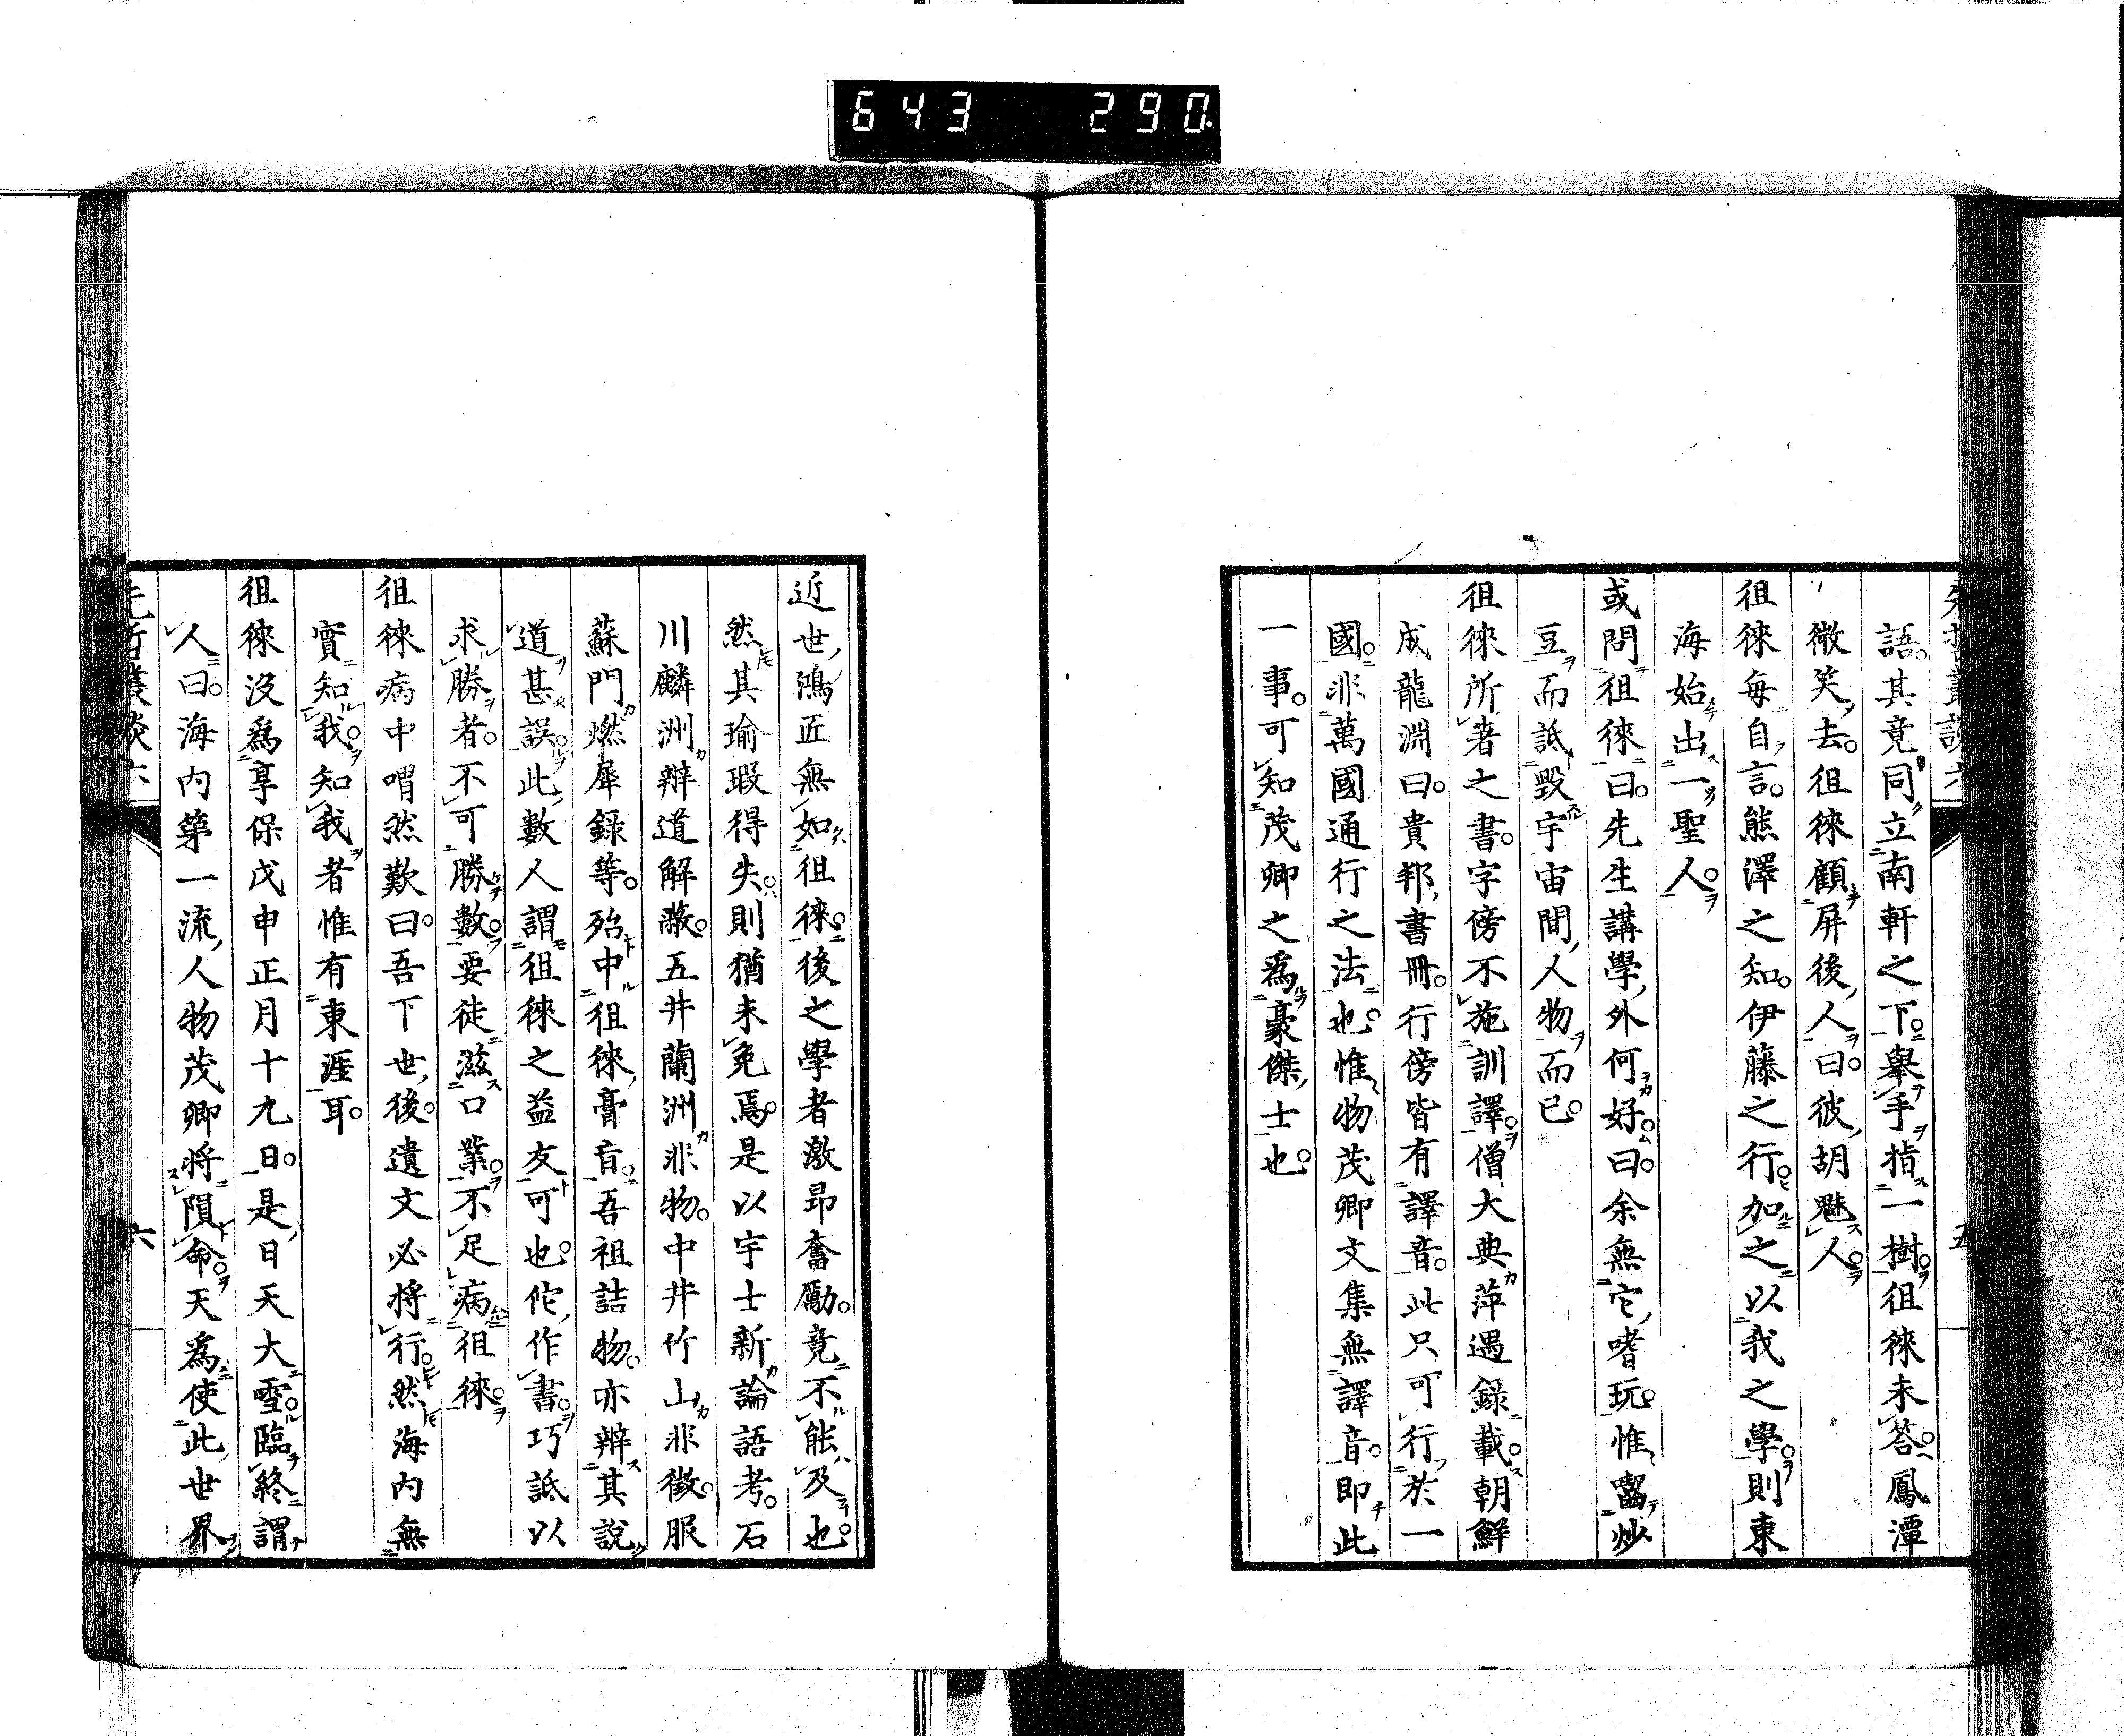 643 290
語其竟同立南軒之下舉手指一樹徂徠未答鳳潭
微笑去徂徠顧屏後人曰彼胡魅人
徂徠每自言熊澤之知伊藤之行加之以我之學則東
海始出一聖人
或問徂徠曰先生講學外何好曰余無它嗜玩惟嚙炒
豆而詆毀宇宙間人物而已
徂徠所著之書字傍不施訓譯僧大典萍遇錄載朝鮮
成龍淵曰貴邦書冊行傍皆有譯音此只可行於一
國非萬國通行之法也惟物茂卿文集無譯音即此
一事可知茂卿之爲豪傑士也
五
近世鴻匠無如徂徠後之學者激昂奮勵竟不能及也
然其瑜瑕得失則猶未免焉是以宇士新論語考石
川麟洲辯道解蔽五井蘭洲非物中井竹山非徵服
蘇門燃犀錄等殆中徂徠膏肓吾祖詰物亦辨其說
道甚誤此數人謂徂徠之益友可也佗作書巧詆以
求勝者不可勝數要徒滋口業不足病徂徠
徂徠病中喟然歎曰吾下世後遺文必將行然海內無
實知我知我者惟有東涯耳
徂徠沒爲享保戊申正月十九日是日天大雪臨終謂
人曰海內第一流人物茂卿將隕命天爲使此世界
先哲叢談六
六